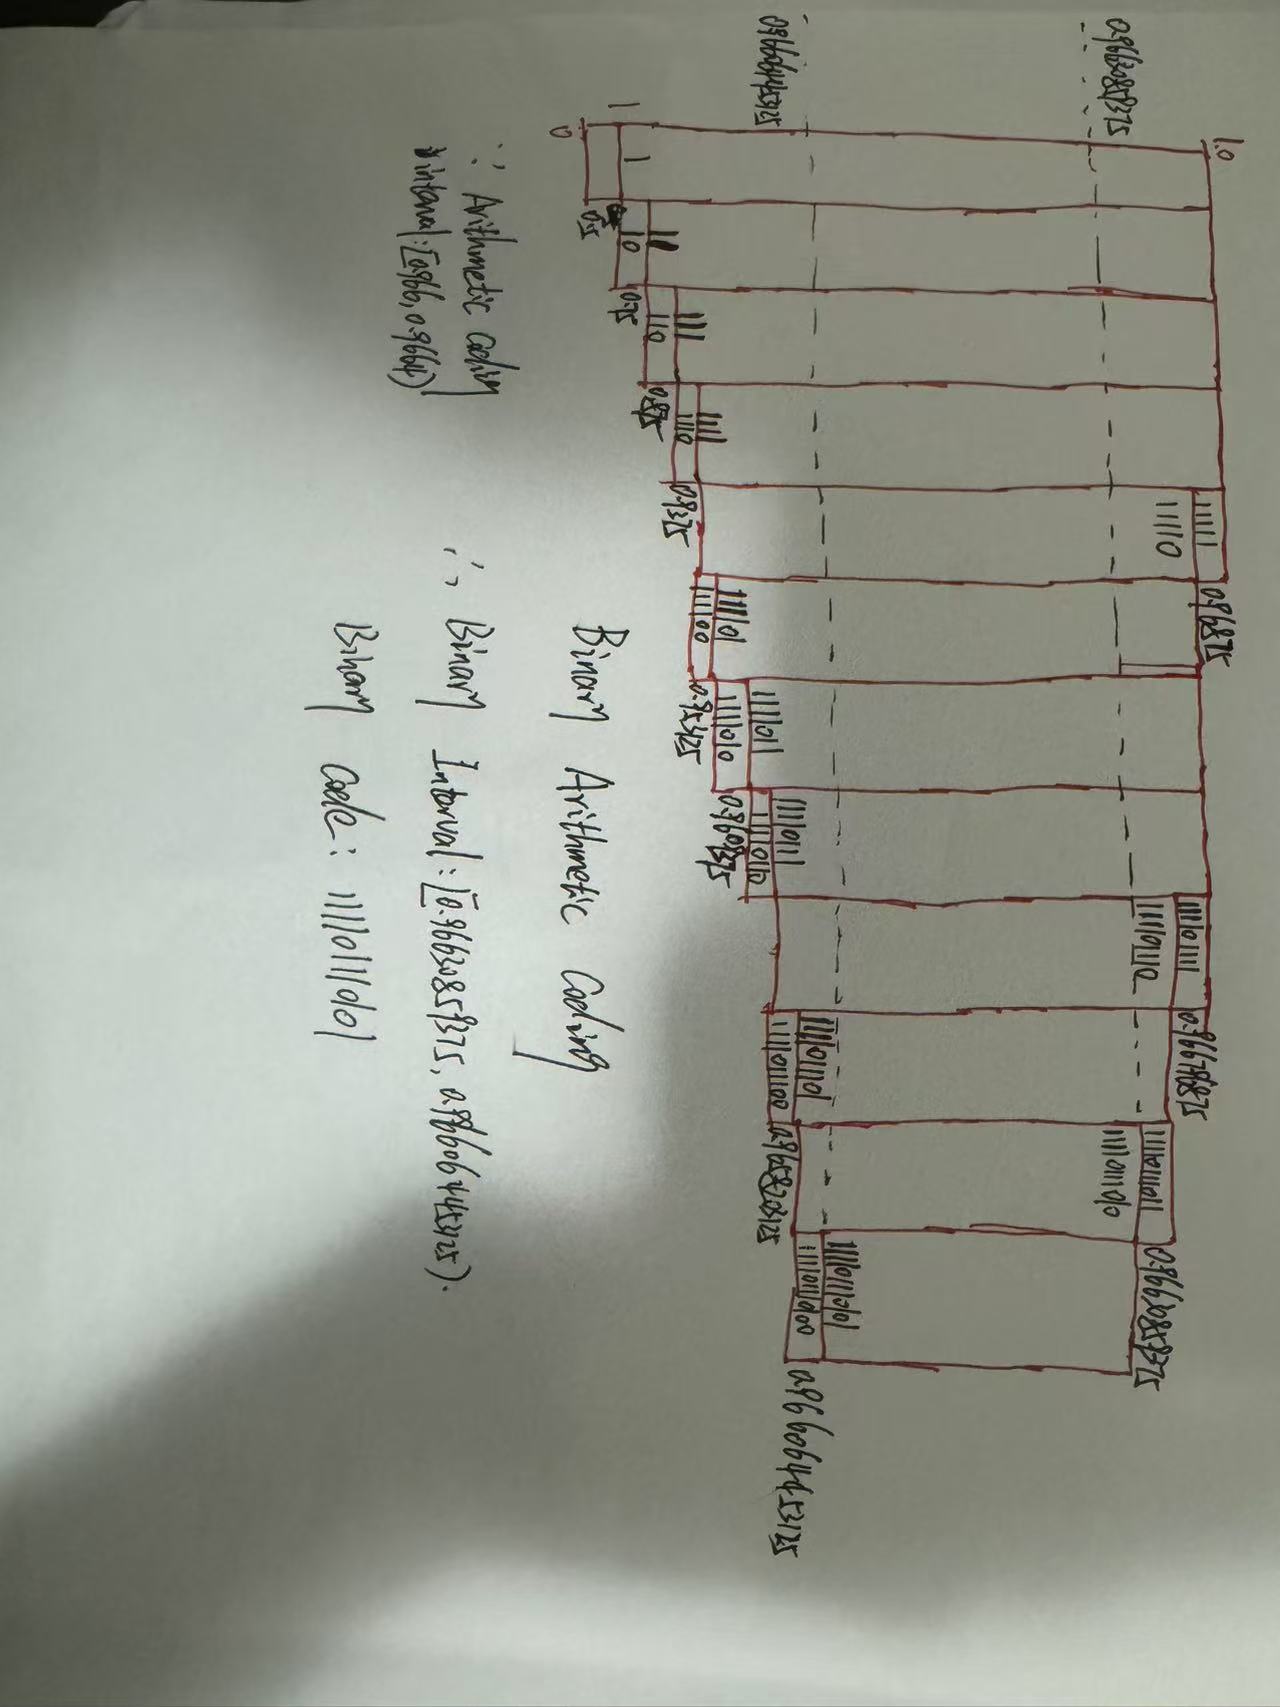 1.0
0.96630859375
0.9660644453125
1
0
1
0.5
11
10
0.75
111
110
0.875
1111
1110
0.9375
11111
111110
0.96875
111101
111100
0.953125
1111011
1111010
0.9609375
11110111
11110110
111101111
111101110
0.96678875
1111011101
1111011100
0.9658203125
11110111011
11110111010
0.96630859375
111101110101
111101110100
0.9660644453125
∵ Arithmetic Coding
interval: [0.966, 0.9664)
Binary Arithmetic Coding
∴ Binary Interval: [0.96630859375, 0.9660644453125).
Binary Code: 111101110101